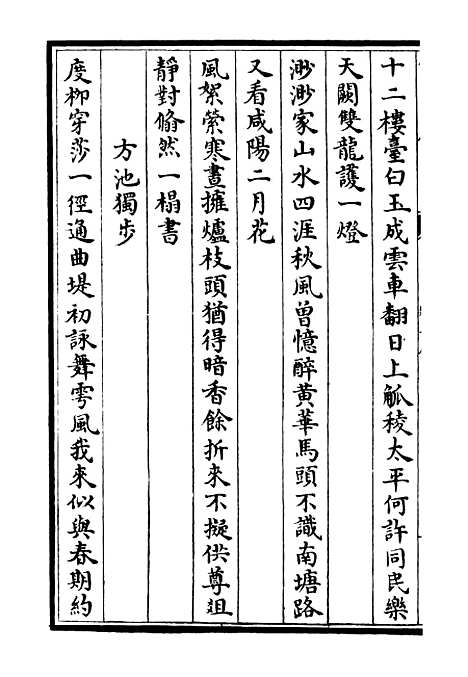 十二樓臺白玉成雲車翻日上觚稜太平何許同民樂
天闕雙龍護一燈
渺渺家山水四涯秋風曾憶醉黃華馬頭不識南塘路
又看咸陽二月花
風絮縈寒晝擁爐枝頭猶得暗香餘折來不擬供尊俎
靜對翛然一榻書
方池獨步
度柳穿莎一徑通曲堤初詠舞雩風我來似與春期約